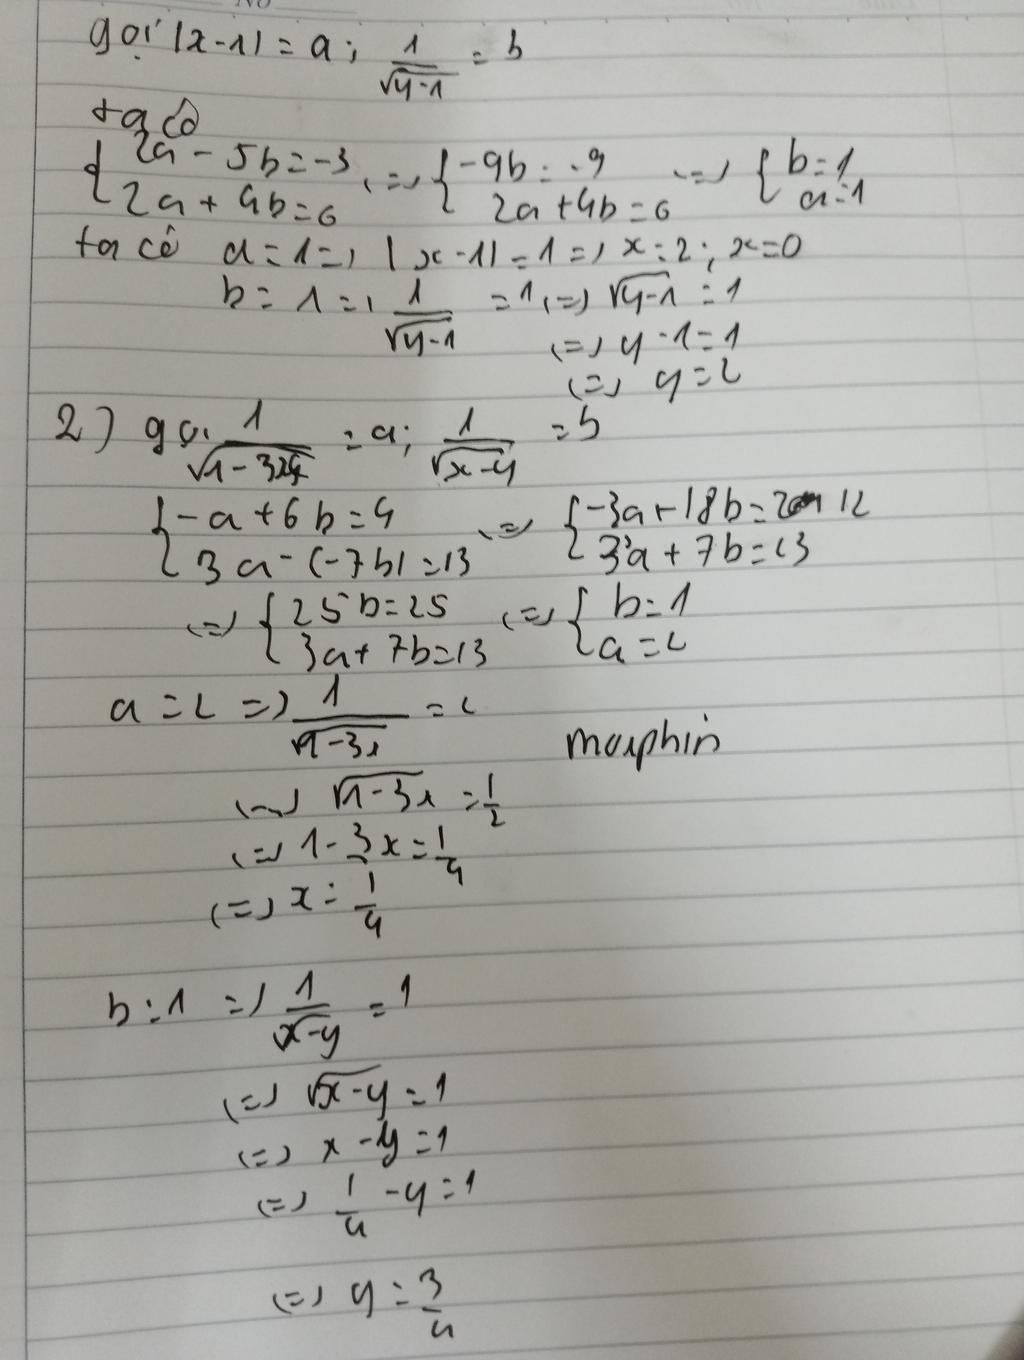 gọi |x-1| = a; 1/√(y-1) = b
ta có
{ 2a - 5b = -3 ; 2a + 4b = 6 <=> { -9b = -9 ; 2a + 4b = 6 <=> { b = 1 ; a = 1
ta có a = 1 => |x-1| = 1 => x = 2; x = 0
b = 1 => 1/√(y-1) = 1 <=> √(y-1) = 1
<=> y - 1 = 1
<=> y = 2
2) gọi 1/√(1-3x) = a; 1/√(x-y) = b
{ -a + 6b = 4 ; 3a - (-7b) = 13 <=> { -3a + 18b = 12 ; 3a + 7b = 13
<=> { 25b = 25 ; 3a + 7b = 13 <=> { b = 1 ; a = 2
a = 2 => 1/√(1-3x) = 2
morphin
<=> √(1-3x) = 1/2
<=> 1 - 3x = 1/4
<=> x = 1/4
b = 1 => 1/√(x-y) = 1
<=> √(x-y) = 1
<=> x - y = 1
<=> 1/4 - y = 1
<=> y = 3/4